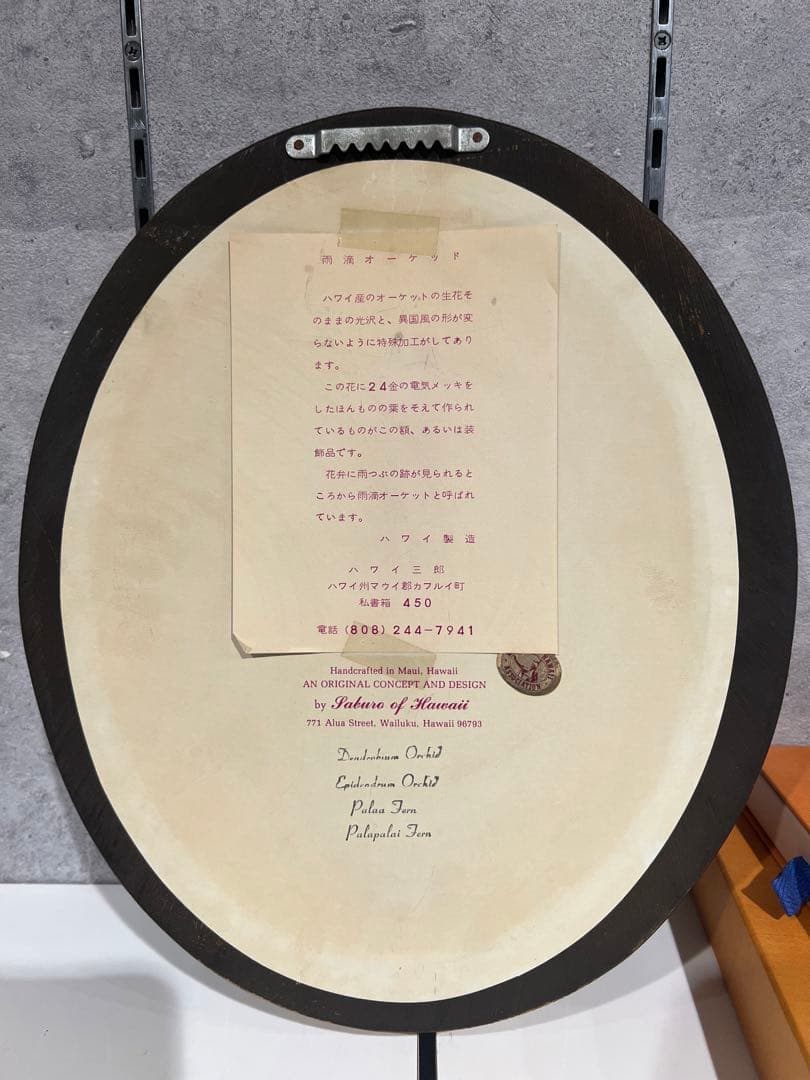 雨滴オーケッド
ハワイ産のオーケットの生花そ
のままの光沢と、異国風の形が変
らないように特殊加工がしてあり
ます。
この花に24金の電気メッキを
したほんものの葉をそえて作られ
ているものがこの額、あるいは装
飾品です。
花弁に雨つぶの跡が見られると
ころから雨滴オーケットと呼ばれ
ています。
ハワイ製造
ハワイ三郎
ハワイ州マウイ郡カフルイ町
私書箱 450
電話 (808) 244-7941
Handcrafted in Maui, Hawaii
AN ORIGINAL CONCEPT AND DESIGN
by Saburo of Hawaii
771 Alua Street, Wailuku, Hawaii 96793
Dendrobium Orchid
Epidendrum Orchid
Palaa Fern
Palapalai Fern
HAWAII
ASSOCIATION